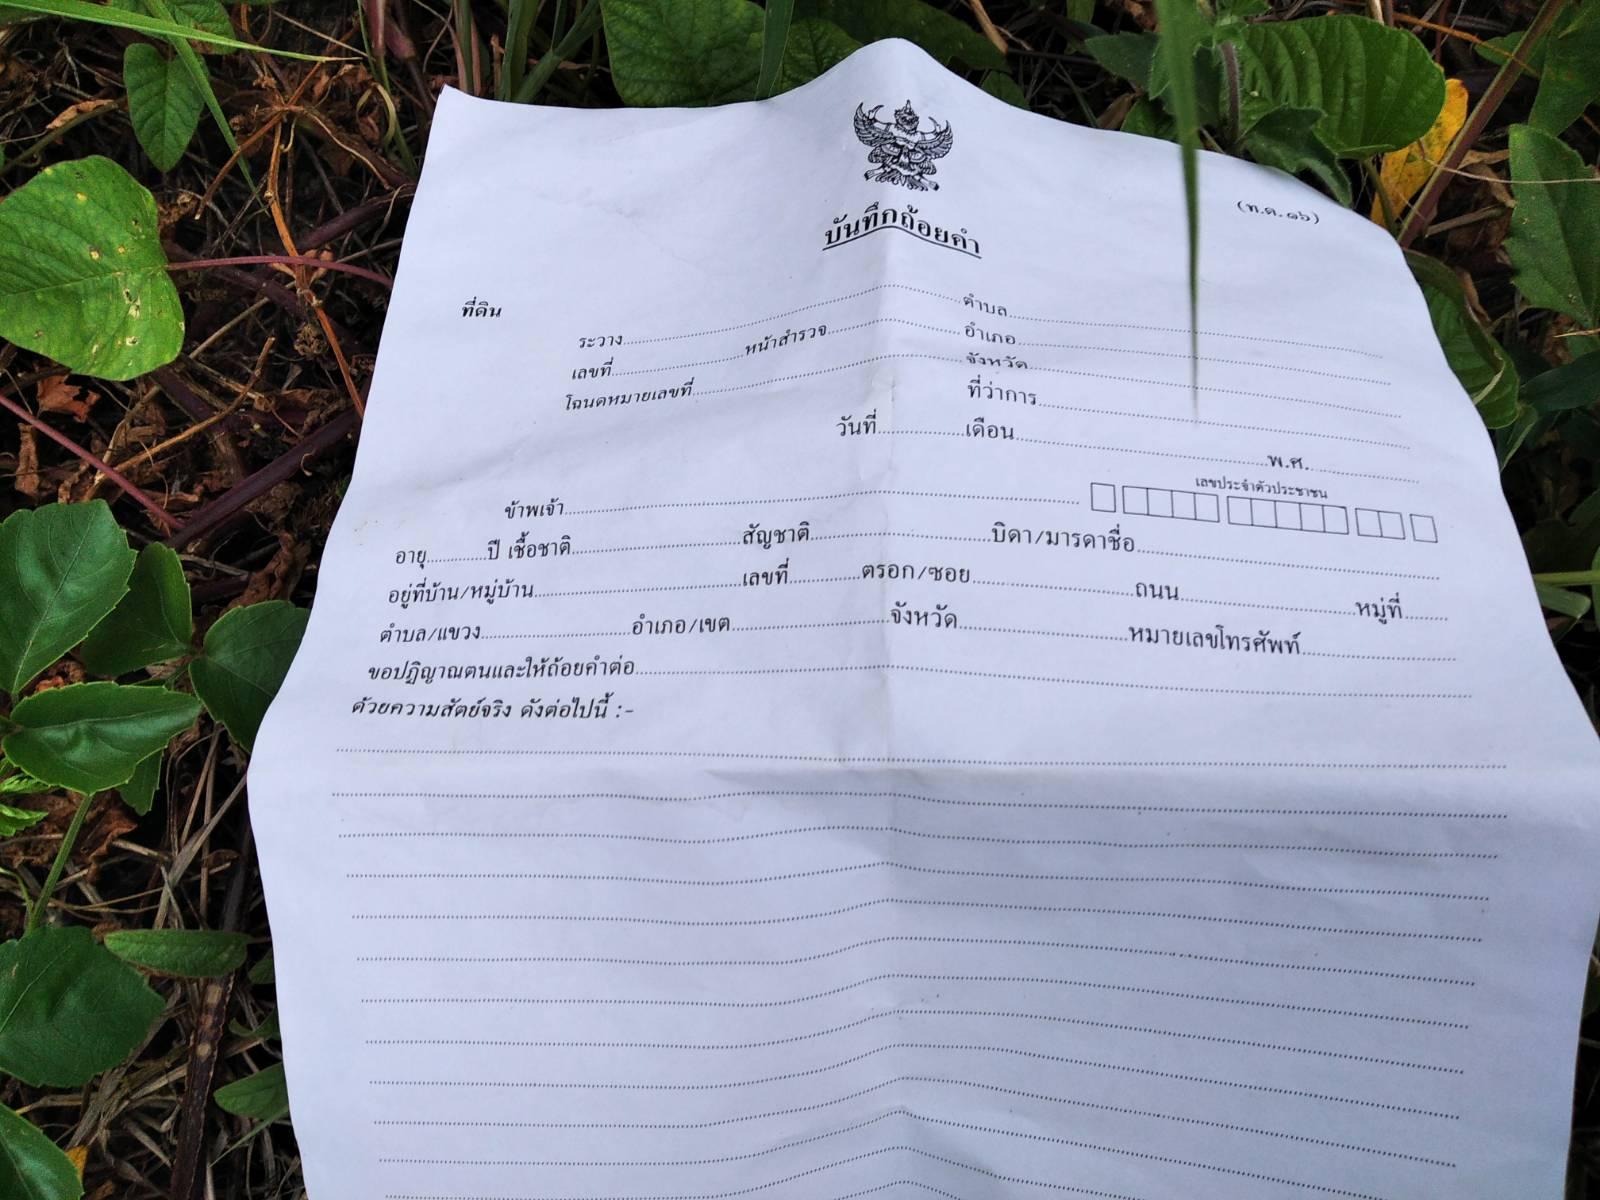 (ท.ด.๑๖)
บันทึกถ้อยคำ
ที่ดิน
ระวาง ตำบล
เลขที่ หน้าสำรวจ อำเภอ
โฉนดหมายเลขที่ จังหวัด
ที่ว่าการ
วันที่ เดือน พ.ศ.
เลขประจำตัวประชาชน
ข้าพเจ้า
อายุ ปี เชื้อชาติ สัญชาติ บิดา/มารดาชื่อ
อยู่ที่บ้าน/หมู่บ้าน เลขที่ ตรอก/ซอย ถนน หมู่ที่
ตำบล/แขวง อำเภอ/เขต จังหวัด หมายเลขโทรศัพท์
ขอปฏิญาณตนและให้ถ้อยคำต่อ
ด้วยความสัตย์จริง ดังต่อไปนี้ :-